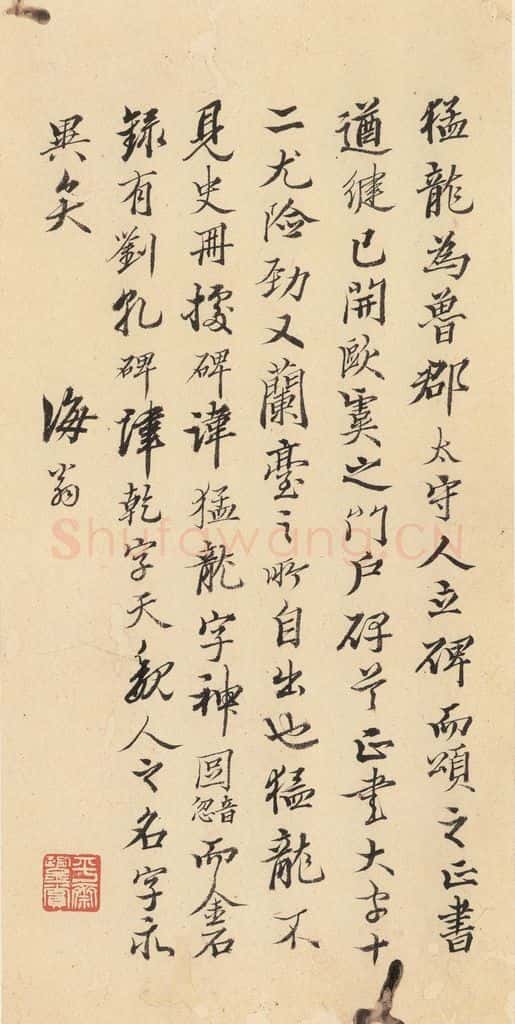 猛龍為魯郡太守人立碑而頌之正書
遒健已開歐虞之門戶碑首正書大字十
二尤險劲又蘭臺之所自出也猛龍不
見史冊據碑諱猛龍字神音忽而金石
錄有劉碑諱乾字天魏人之名字亦
異矣
海翁
Shufawang.CN